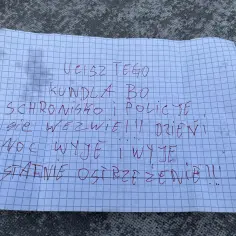 UCISZ TEGO
KUNDLA BO
SCHRONISKO I POLICJE
WEZWIE!!! DZIEŃ
NOC WYJE I WYJE
STATNIE OSTRZEŻENIE!!!